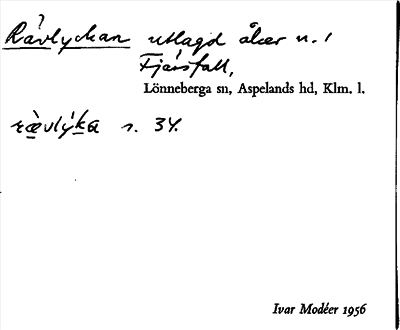 ?
Rävlyckan utlagd åker n. /
Fjärsfall,
Lönneberga sn, Aspelands hd, Klm. l.
rævlýka s. 34.
Ivar Modéer 1956